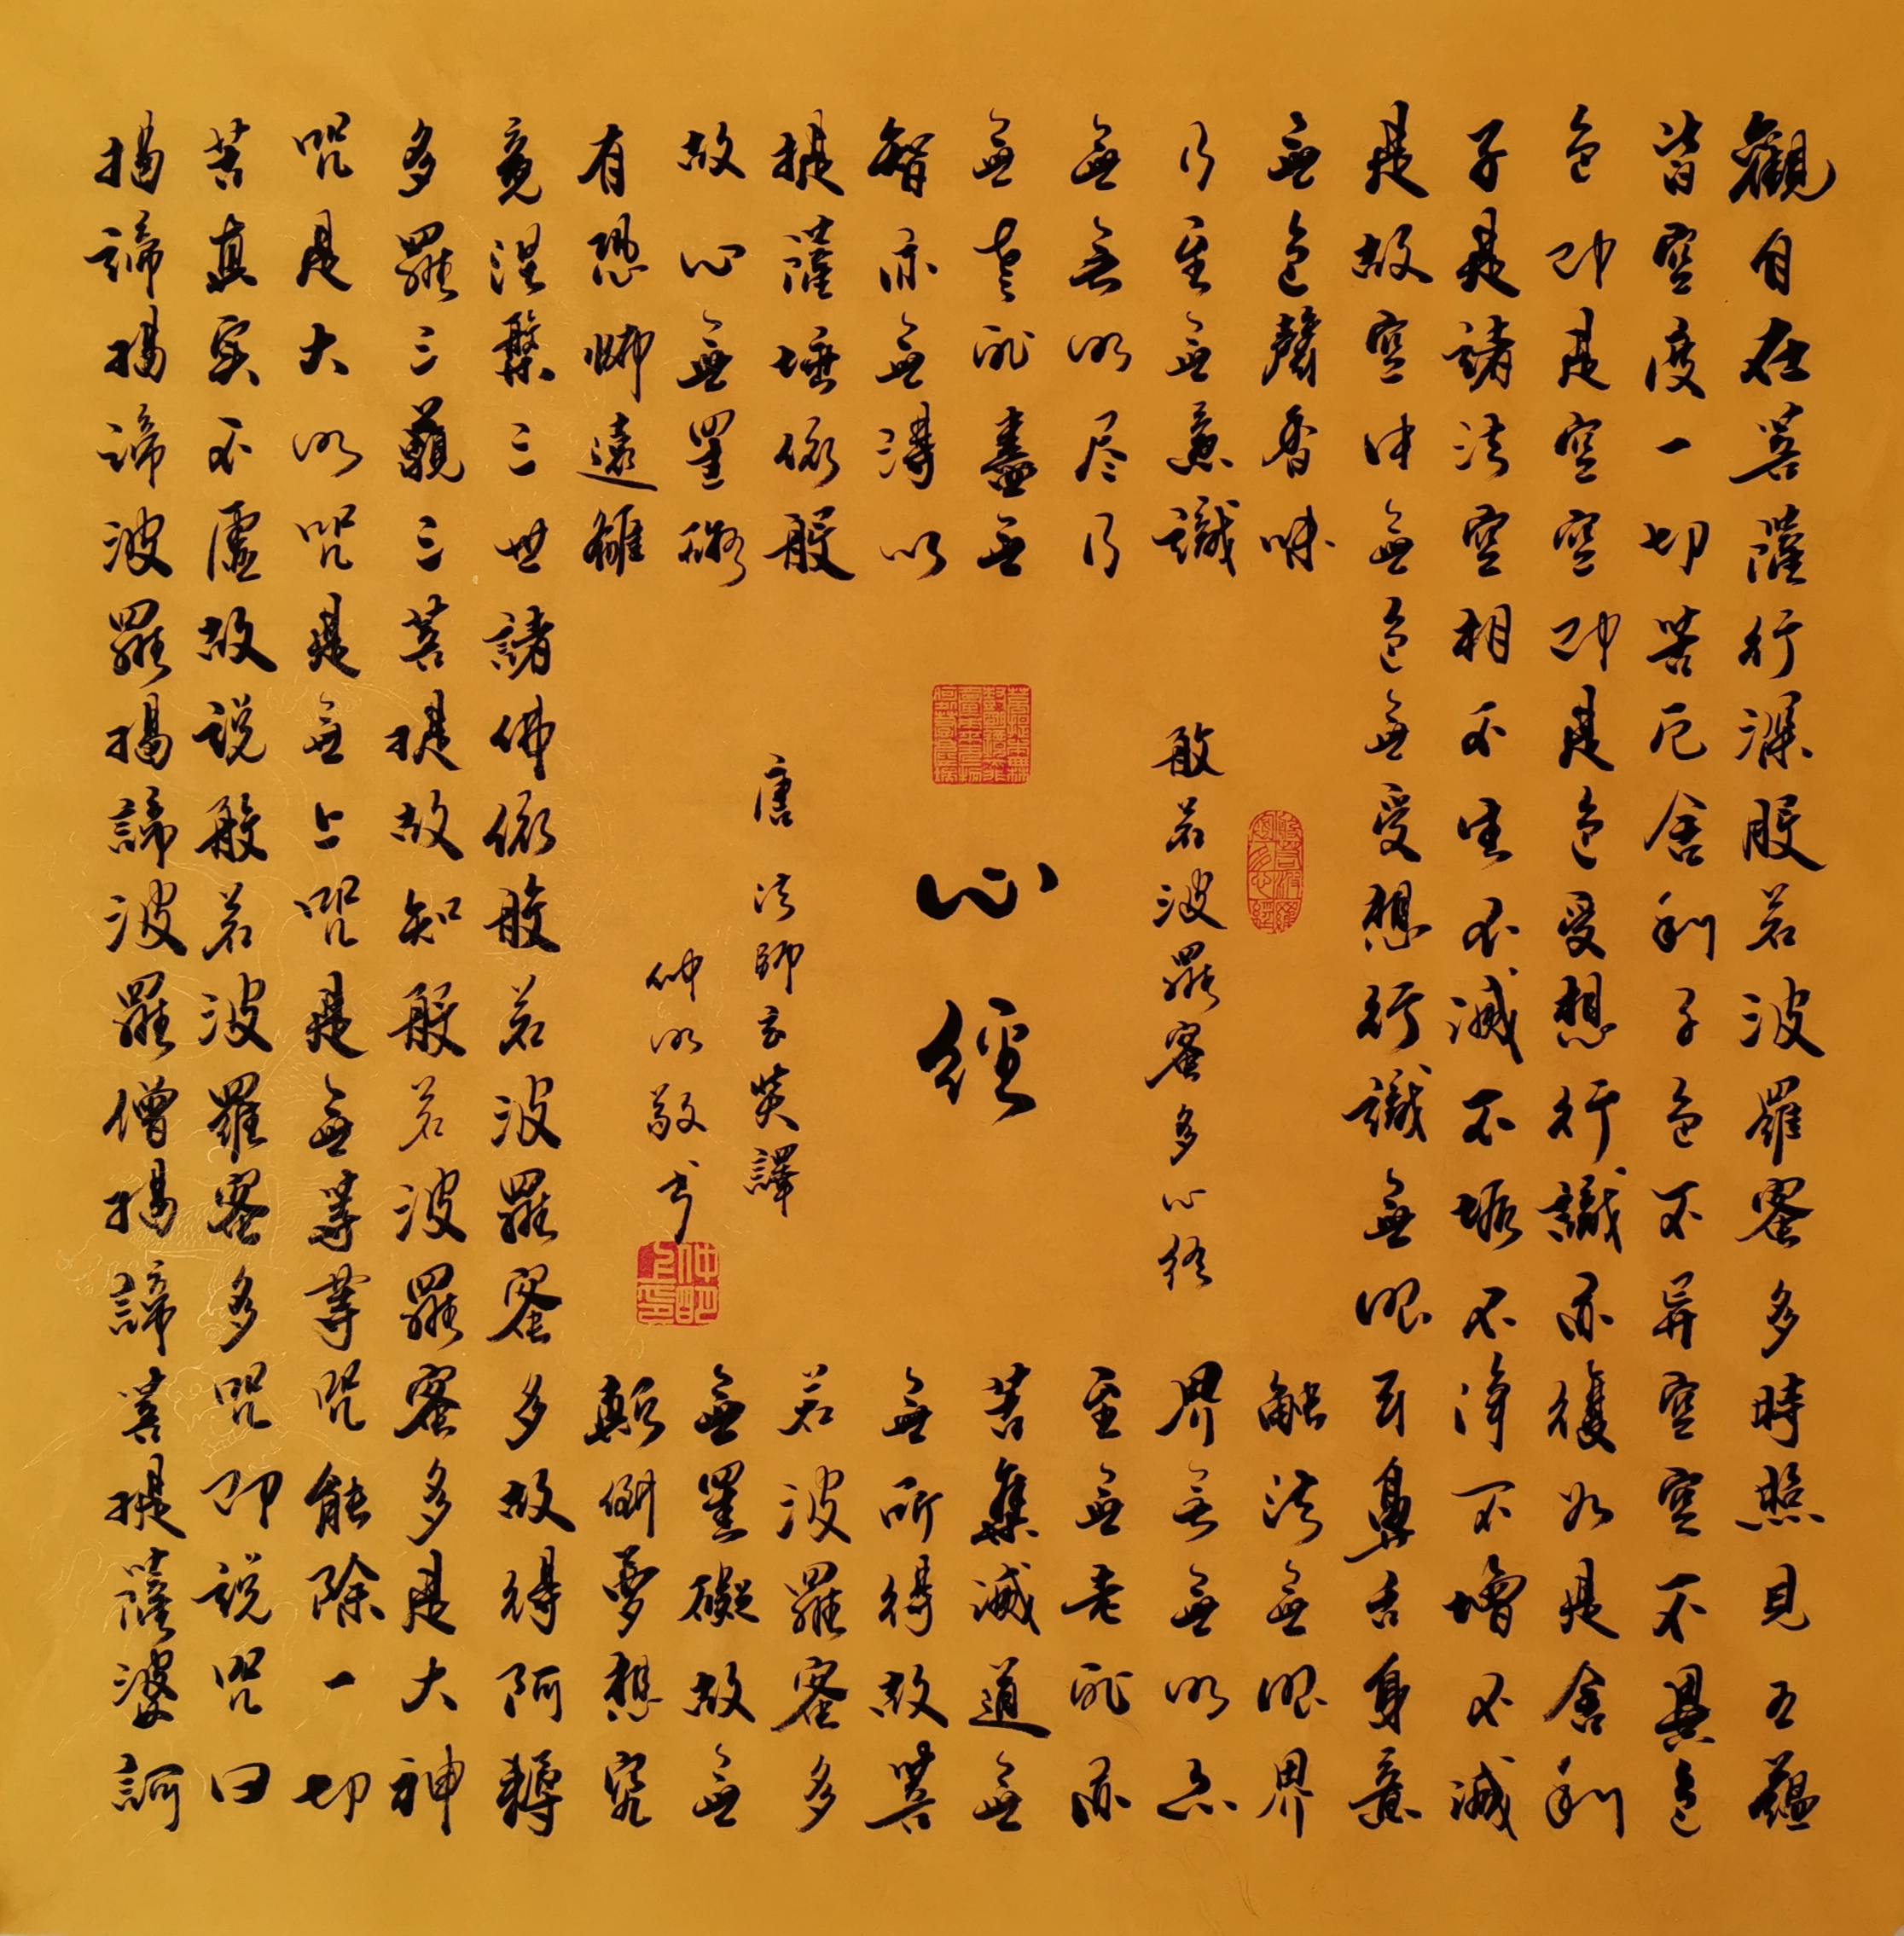 觀自在菩薩行深般若波羅蜜多時照見五蘊
皆空度一切苦厄舍利子色不异空空不異色
色即是空空即是色受想行識亦復如是舍利
子是諸法空相不生不滅不垢不淨不增不減
是故空中無色無受想行識無眼耳鼻舌身意
無色聲香味觸法無眼界
乃至無意識界無無明亦
無無明尽乃至無老死亦
無老死盡無苦集滅道無
智亦無得以無所得故菩
提薩埵依般若波羅蜜多
故心無罣礙無罣礙故無
有恐怖遠離顛倒夢想究
竟涅槃三世諸佛依般若波羅蜜多故得阿耨
多羅三藐三菩提故知般若波羅蜜多是大神
咒是大明咒是無上咒是無等等咒能除一切
苦真实不虛故説般若波羅蜜多咒即説咒曰
揭諦揭諦波羅揭諦波羅僧揭諦菩提薩婆訶
般若波羅蜜多心経
心經
唐法師玄奘譯
仲明敬书
般若波羅蜜多心經